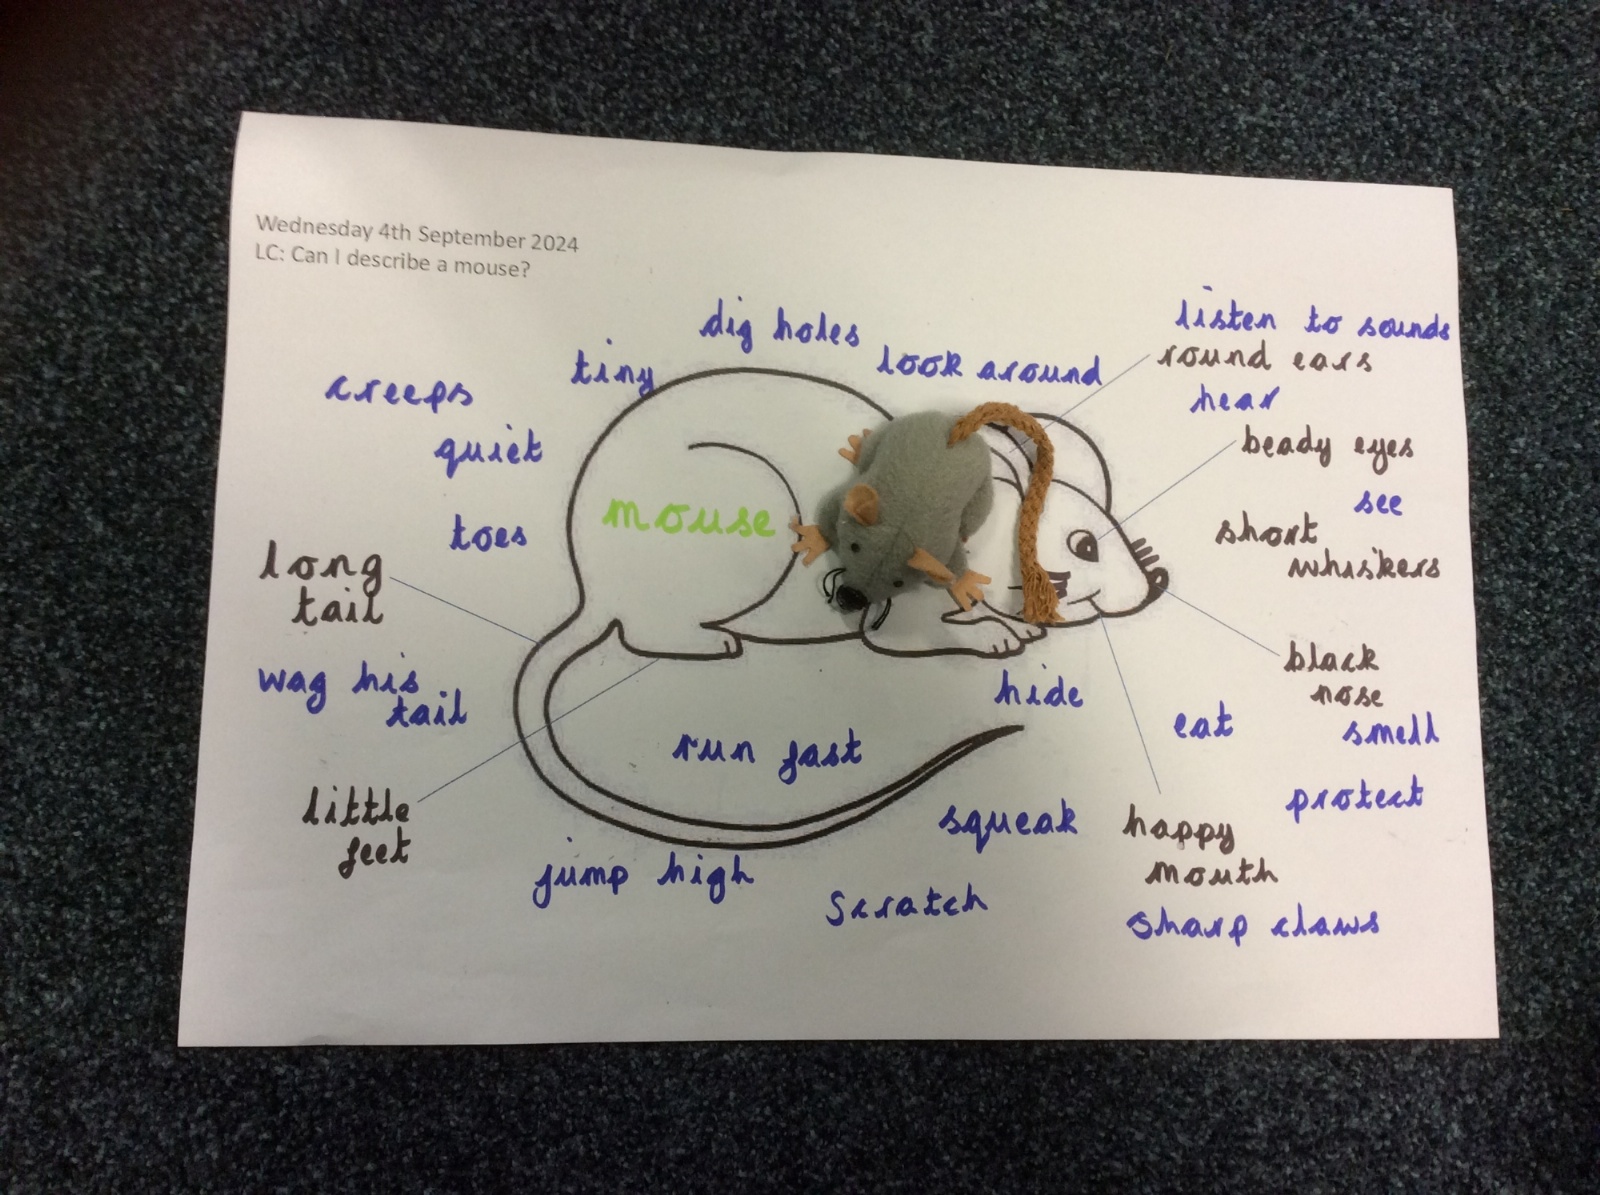 Wednesday 4th September 2024
LC: Can I describe a mouse?
dig holes
tiny
look around
listen to sounds
round ears
creeps
hear
quiet
beady eyes
see
mouse
toes
short
whiskers
long
tail
wag his
tail
black
nose
hide
eat
smell
run fast
little
feet
protect
squeak
happy
mouth
jump high
scratch
sharp claws